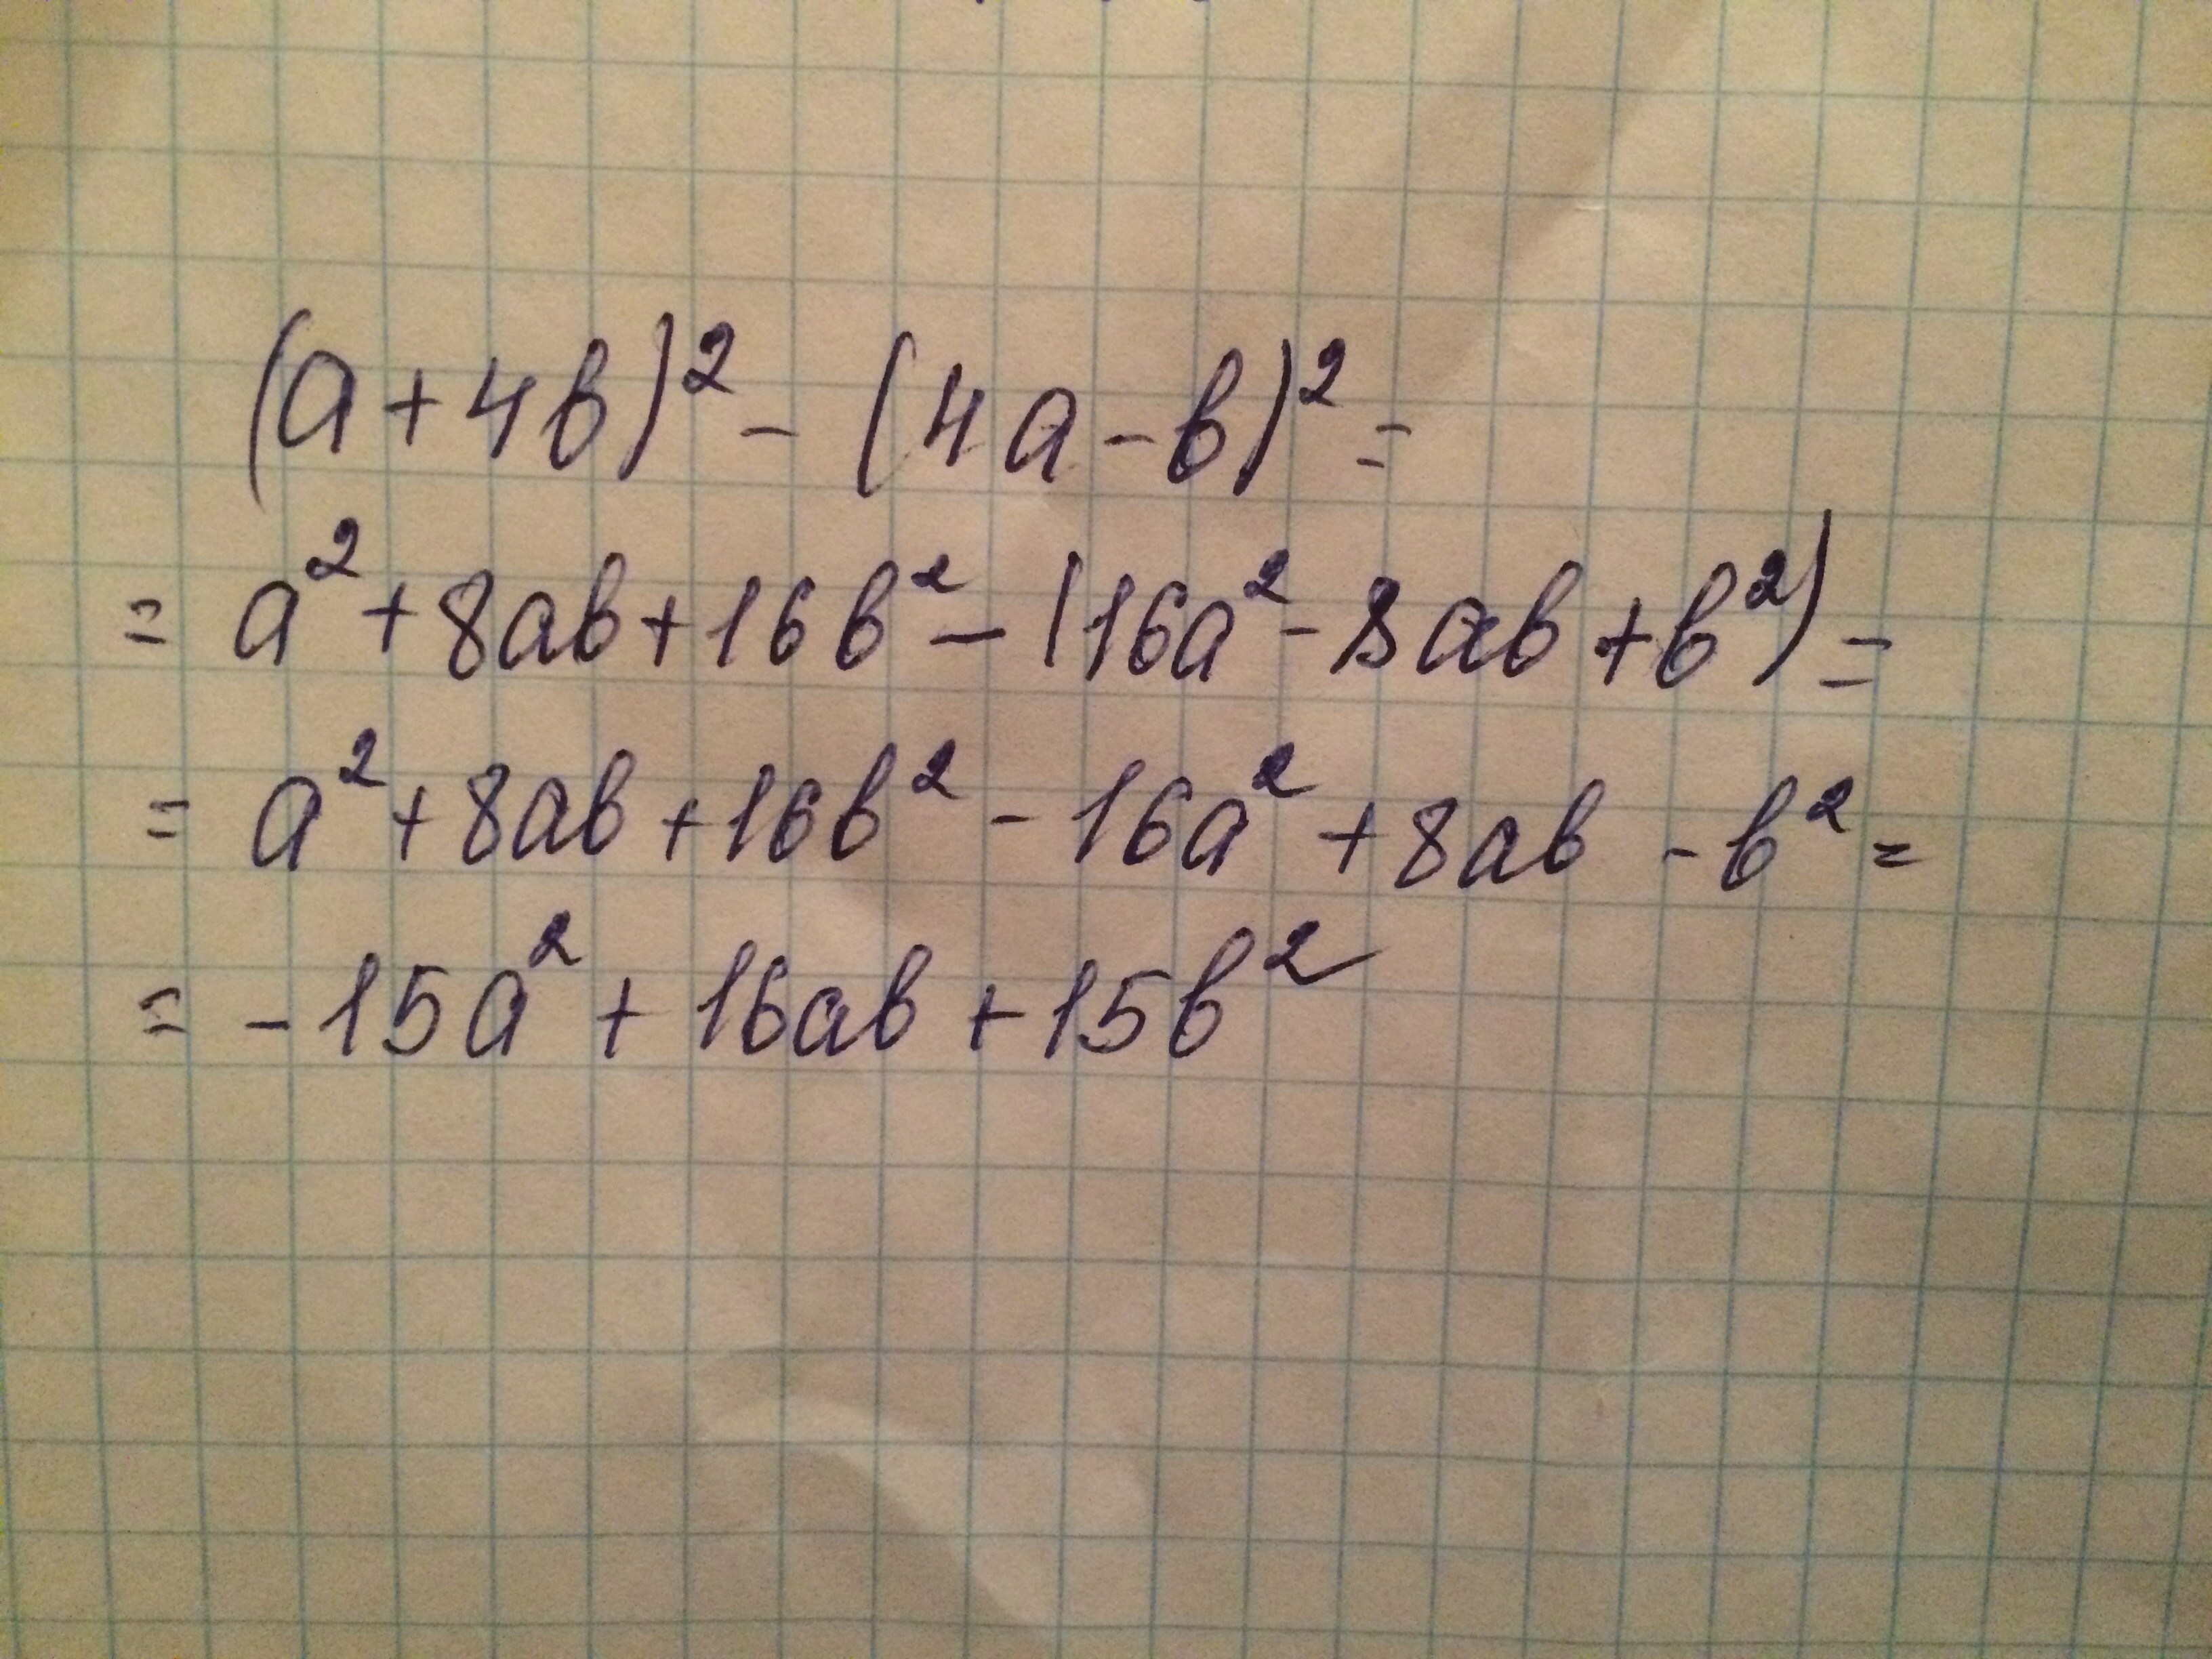 (a+4b)² - (4a-b)² =
= a² + 8ab + 16b² - (16a² - 8ab + b²) =
= a² + 8ab + 16b² - 16a² + 8ab - b² =
= -15a² + 16ab + 15b²